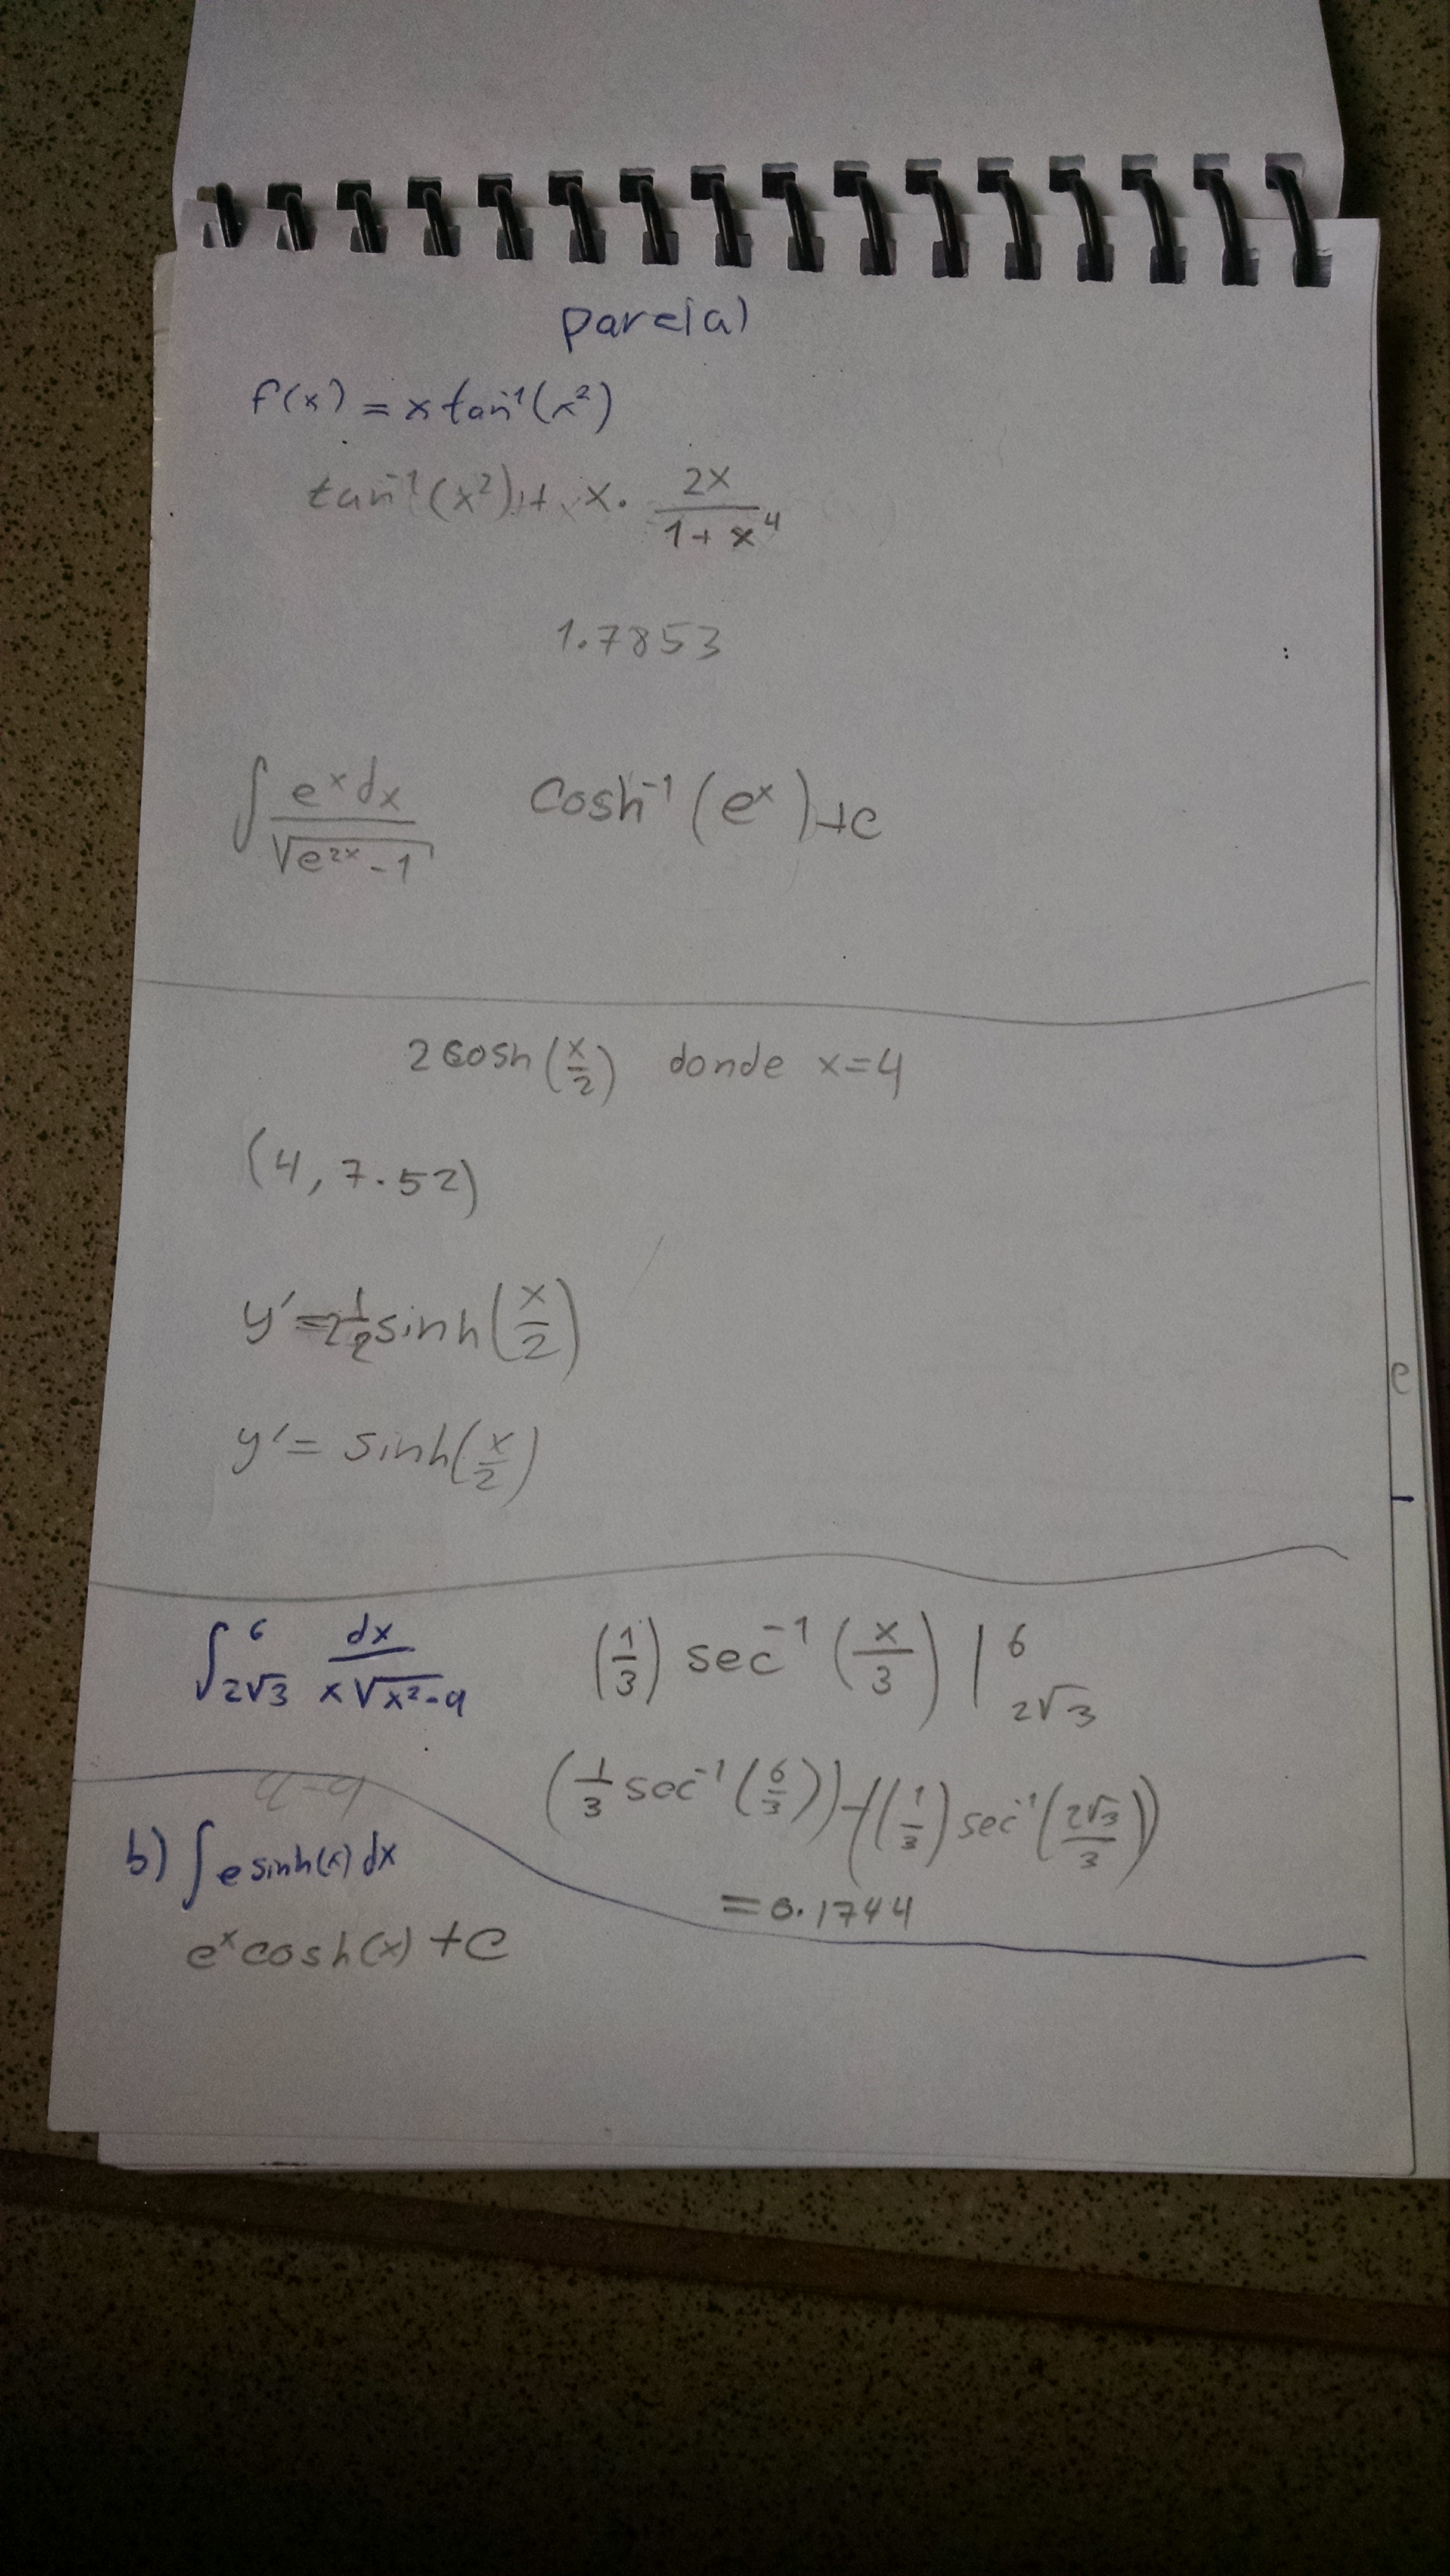 parcial
f(x) = x tan⁻¹(x²)
tan⁻¹(x²) + x · 2x/(1+x⁴)
1.7853
∫ eˣdx/√(e²ˣ-1) cosh⁻¹(eˣ)+c
2cosh(x/2) donde x=4
(4, 7.52)
y'=2 1/2 sinh(x/2)
y'= sinh(x/2)
∫₂√3⁶ dx/(x√(x²-9)) (1/3) sec⁻¹(x/3) |₂√3⁶
(1/3 sec⁻¹(6/3))-((1/3) sec⁻¹(2√3/3))
= 0.1744
b) ∫e sinh(x) dx
eˣcosh(x) +c